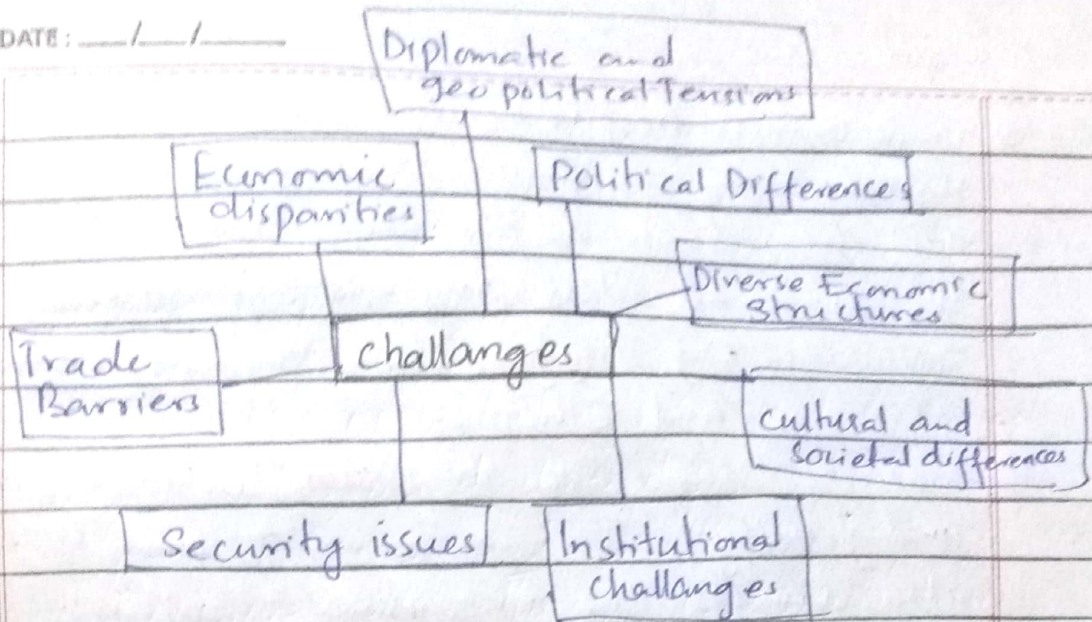 DATE: ___/___/_____
Diplomatic and
geopolitical Tensions
Economic
disparities
Political Differences
Diverse Economic
Structures
Trade
Barriers
challanges
Cultural and
Societal differences
Security issues
Institutional
challanges